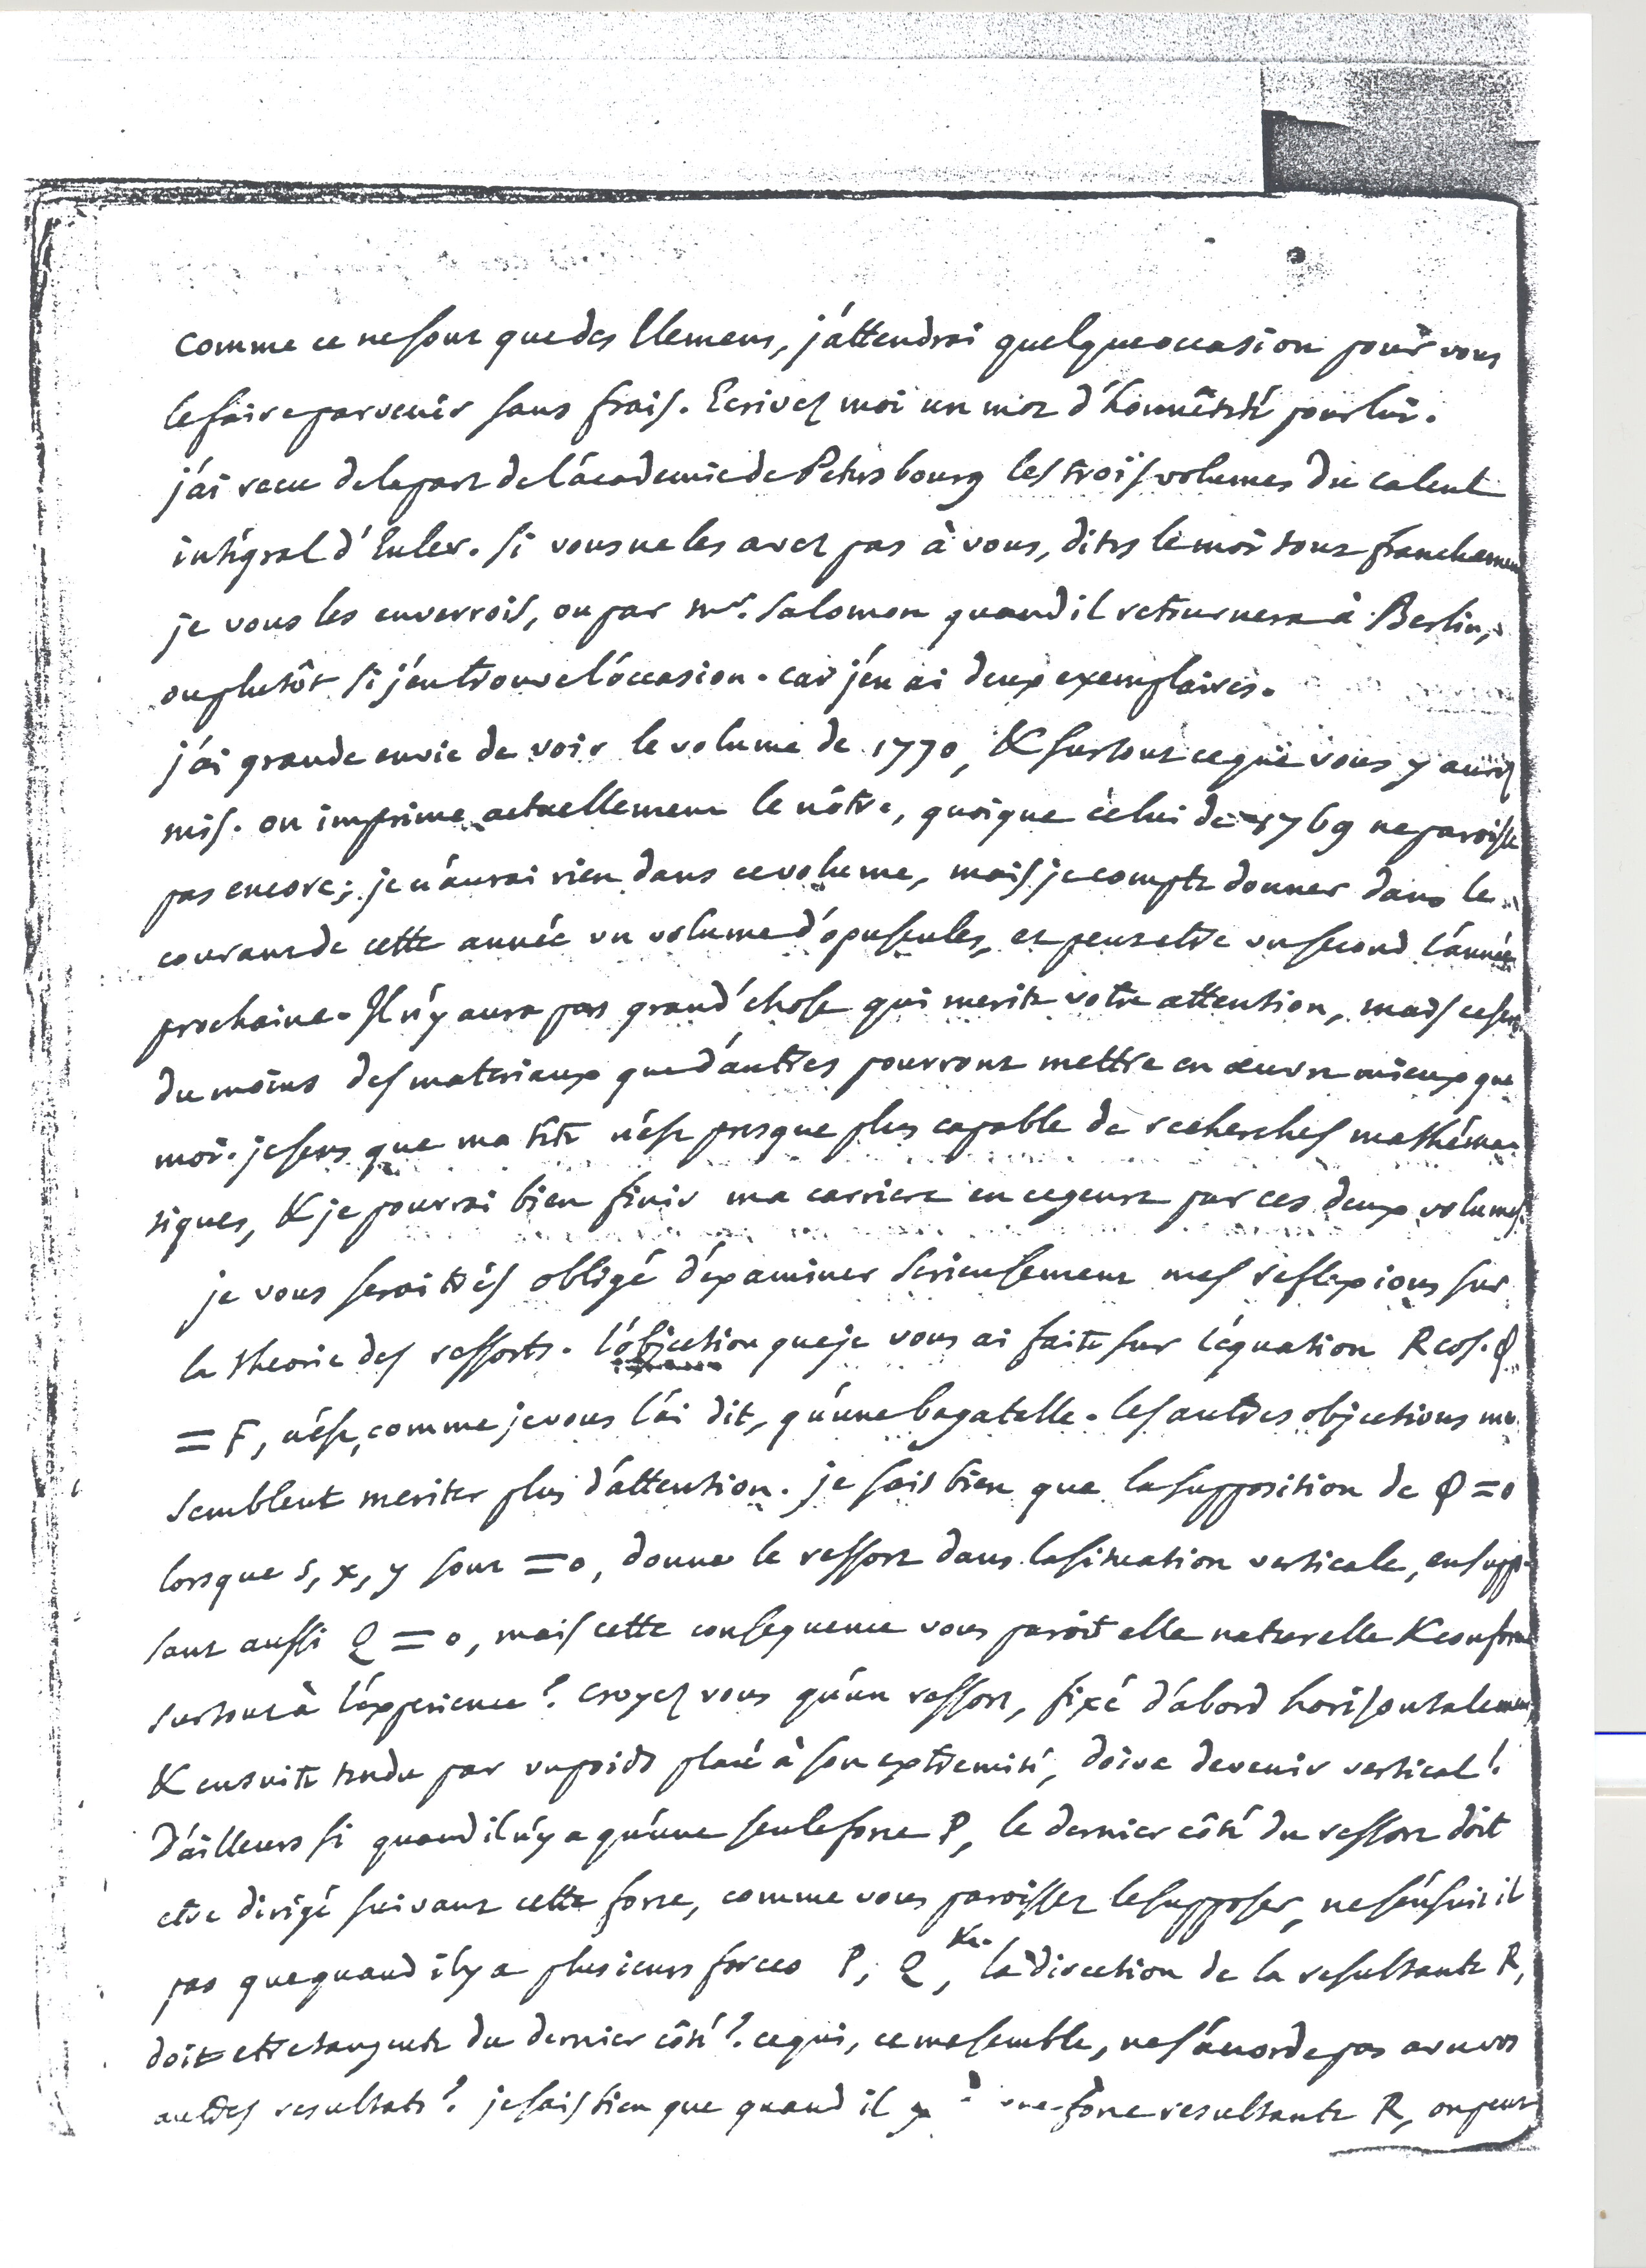 comme ce ne sont que des Elemens, j'attendrai quelque occasion pour vous
le faire parvenir sans frais. Ecrivez moi un mot d'honnêteté pour lui.
j'ai recu de la part de l'académie de Petersbourg les trois volumes du calcul
intégral d'Euler. si vous ne les avez pas à vous, dites le moi tout franchement
je vous les enverrois, ou par mr. Salomon quand il retournera à Berlin,
ou plutôt si j'en trouve l'occasion. car j'en ai deux exemplaires.
j'ai grande envie de voir le volume de 1770, & surtout ce que vous y aurez
mis. on imprime actuellement le nôtre, quoique celui de 1769 ne paroisse
pas encore; je n'aurai rien dans ce volume, mais je compte donner dans le
courant de cette année un volume d'opuscules, et peutetre un second l'année
prochaine. Il n'y aura pas grand'chose qui merite votre attention, mais ce sera
du moins des materiaux que d'autres pourront mettre en œuvre mieux que
moi. je sens que ma tête n'est presque plus capable de recherches mathéma-
tiques, & je pourrai bien finir ma carriere en ce genre par ces deux volumes.
je vous serai très obligé d'examiner serieusement mes reflexions sur
la theorie des ressorts. l'objection que je vous ai faite sur l'équation R cos. φ
= F, n'est, comme je vous l'ai dit, qu'une bagatelle. les autres objections me
semblent meriter plus d'attention. je sais bien que la supposition de φ = 0
lorsque s, x, y sont = 0, donne le ressort dans la situation verticale, en suppo-
sant aussi Q = 0, mais cette consequence vous paroit elle naturelle & conforme
surtout à l'experience? croyez vous qu'un ressort, fixé d'abord horisontalement,
& ensuite tendu par un poids placé à son extremité, doive devenir vertical?
D'ailleurs si quand il n'y a qu'une seule force P, le dernier côté du ressort doit
etre dirigé suivant cette force, comme vous paroissez le supposer, ne s'ensuit il
pas que quand il y a plusieurs forces P, Q, &c. la direction de la resultante R,
doit etre tangente du dernier côté? ce qui, ce me semble, ne s'accorde pas avec vos
autres resultats? je sais bien que quand il y a une force resultante R, on peut